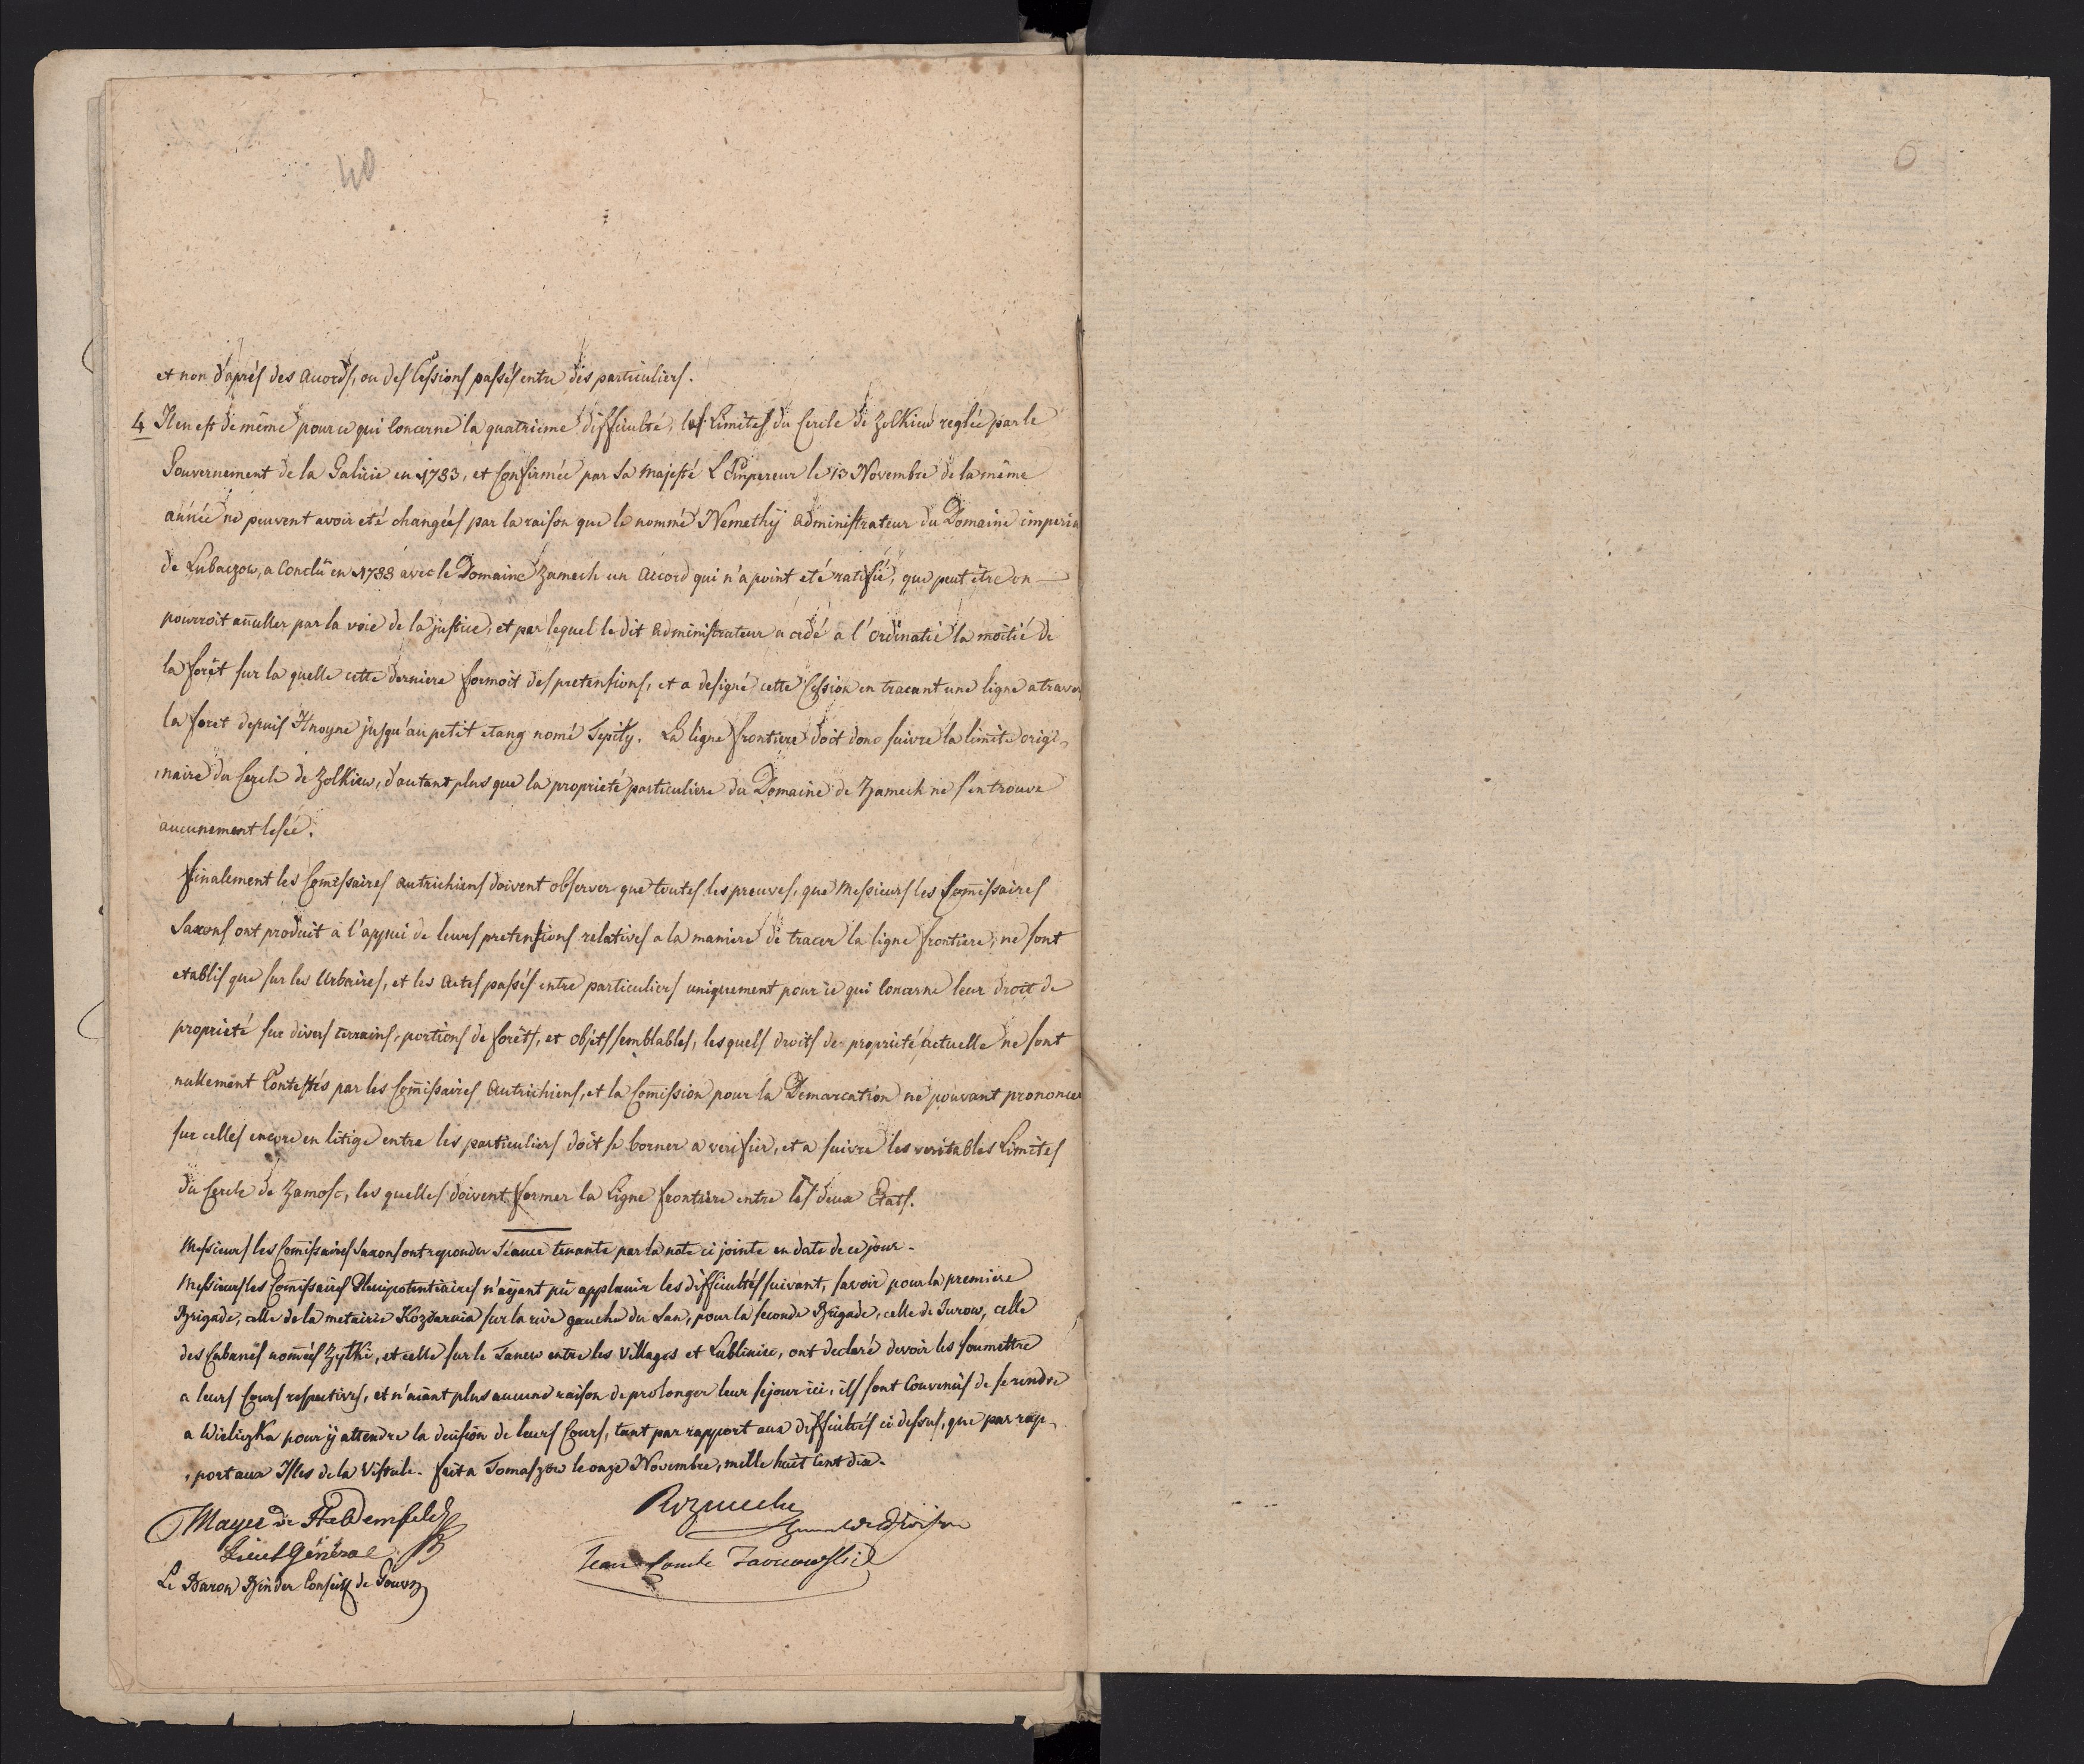 40
6
et non d'aprés des Acords, ou des Cessions passés entre des particuliers.
4 Il en est de même pour ce qui Concerne la quatrieme difficulté, les Limites du Cercle de Zolkiew reglée par le
Gouvernement de la Galicie en 1783, et Confirmée par Sa Majesté L'Empereur le 13 Novembre de la même
année ne peuvent avoir eté changées par la raison que le nommé Nemethÿ Administrateur du Domaine imperia
de Lubaczow, a Conclû en 1788 avec le Domaine Zamech un Accord qui n'a point eté ratifié, que peut être on
pourroit anuller par la voie de la justice, et par lequel le dit Administrateur a cedé a l'ordinatie la moitié de
la forêt sur la quelle cette derniere formoit des pretensions, et a designé cette Cession en tracant une ligne a traver
la foret depuis Knoyne jusqu'au petit etang nomé Tepity. La ligne frontiere doit donc suivre la limite origi-
naire du Cercle de Zolkiew, d'autant plus que la proprieté particuliere du Domaine de Zamech ne s'en trouve
aucunement lesée.
Finalement les Comissaires Autrichiens doivent observer que toutes les preuves, que Messieurs les Comissaires
Saxons ont produit a l'appui de leurs pretensions relatives a la maniere de tracer la ligne frontiere, ne sont
etablis que sur les Urbaires, et les Actes passés entre particuliers uniquement pour ce qui Concerne leur droit de
proprieté sur divers terrains, portions de forêts, et objets semblables, lesquels droits de proprieté actuelle ne sont
nullement Contestés par les Comissaires Autrichiens, et la Comission pour la Demarcation ne pouvant prononcer
sur celles encore en litige entre les particuliers doit se borner a verifier, et a suivre les veritables Limites
du Cercle de Zamosc, les quelles doivent former la Ligne frontière entre les deux Etats.
Messieurs les Comissaires Saxons ont repondu Séance tenante par la note ci jointe en date de ce jour.
Messieurs les Comissaires Plenipotentiaires n'aÿant pû applanir les difficultés suivant, savoir pour la premiere
Brigade, celle de la metairie Kozdarnia sur la rive gauche du San, pour la seconde Brigade, celle de Jurow, celle
des Cabanes nomées Zytki, et celle sur le Tanew entre les Villages et Lublinice, ont declaré devoir les soumettre
a leurs Cours respectives, et n'aiant plus aucune raison de prolonger leur sejour ici, ils sont Convenûs de se rendre
a Wieliczka pour ÿ attendre la decision de leurs Cours, tant par rapport aux difficultés ci dessus, que par rap-
port aux Isles de la Vistule. Fait a Tomaszow le onze Novembre, mille huit Cent dix.
Mayer de Heldensfeld
Lieut Général
Le Baron Binder Conseill de Gouver
Rozniecki
General de Division
Jean Comte Tarnowski